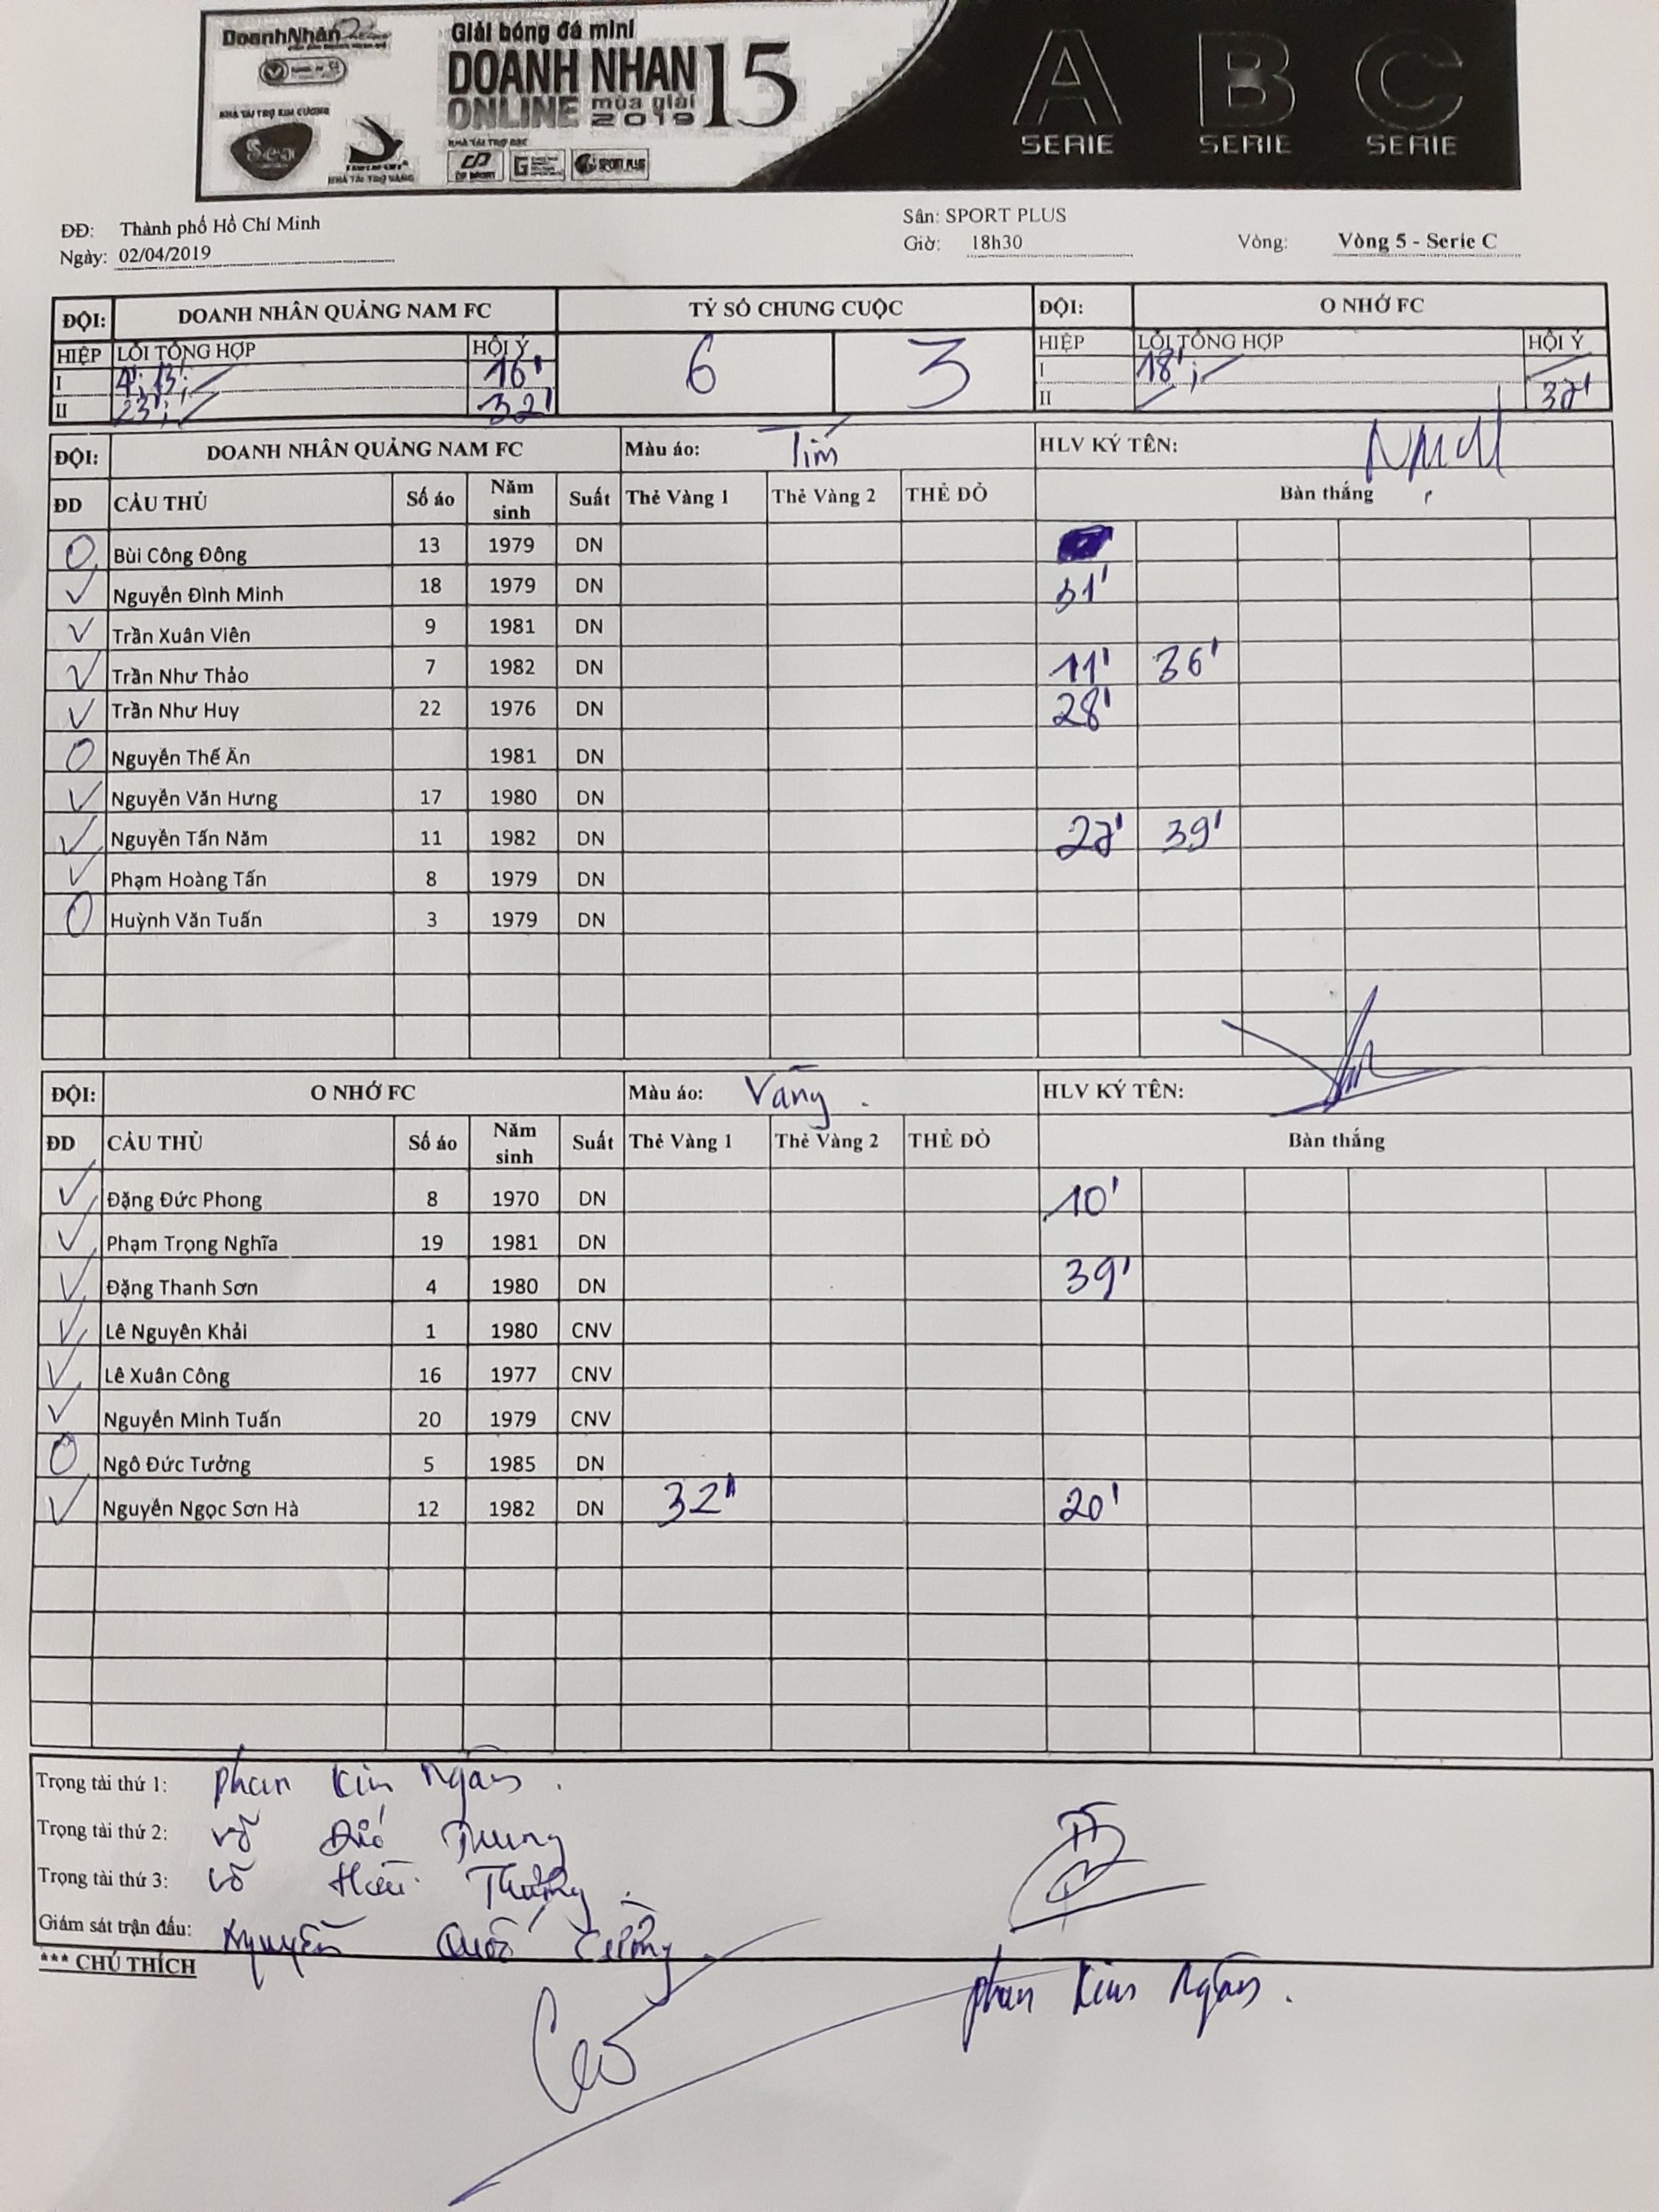 DoanhNhân
NHÀ TÀI TRỢ KIM CƯƠNG
Sea
NHÀ TÀI TRỢ VÀNG
Giải bóng đá mini
DOANH NHAN
ONLINE mùa giải 2019 15
NHÀ TÀI TRỢ BẠC
SPORT PLUS
A SERIE B SERIE C SERIE
ĐĐ: Thành phố Hồ Chí Minh Sân: SPORT PLUS
Ngày: 02/04/2019 Giờ: 18h30 Vòng: Vòng 5 - Serie C
ĐỘI: DOANH NHÂN QUẢNG NAM FC TỶ SỐ CHUNG CUỘC ĐỘI: O NHỚ FC
HIỆP LỖI TỔNG HỢP HỘI Ý 6 3 HIỆP LỖI TỔNG HỢP HỘI Ý
I 4'; 13'; 16' I 18';
II 23'; 32' II 32'
ĐỘI: DOANH NHÂN QUẢNG NAM FC Màu áo: Tím HLV KÝ TÊN:
ĐD CẦU THỦ Số áo Năm sinh Suất Thẻ Vàng 1 Thẻ Vàng 2 THẺ ĐỎ Bàn thắng
O Bùi Công Đông 13 1979 DN
✓ Nguyễn Đình Minh 18 1979 DN 31'
✓ Trần Xuân Viên 9 1981 DN
✓ Trần Như Thảo 7 1982 DN 11' 36'
✓ Trần Như Huy 22 1976 DN 28'
O Nguyễn Thế Ân 1981 DN
✓ Nguyễn Văn Hưng 17 1980 DN
✓ Nguyễn Tấn Năm 11 1982 DN 22' 39'
✓ Phạm Hoàng Tấn 8 1979 DN
O Huỳnh Văn Tuấn 3 1979 DN
ĐỘI: O NHỚ FC Màu áo: Vàng HLV KÝ TÊN:
ĐD CẦU THỦ Số áo Năm sinh Suất Thẻ Vàng 1 Thẻ Vàng 2 THẺ ĐỎ Bàn thắng
✓ Đặng Đức Phong 8 1970 DN 10'
✓ Phạm Trọng Nghĩa 19 1981 DN
✓ Đặng Thanh Sơn 4 1980 DN 39'
✓ Lê Nguyên Khải 1 1980 CNV
✓ Lê Xuân Công 16 1977 CNV
✓ Nguyễn Minh Tuấn 20 1979 CNV
O Ngô Đức Tưởng 5 1985 DN
✓ Nguyễn Ngọc Sơn Hà 12 1982 DN 32' 20'
Trọng tài thứ 1: Phan Kim Ngân.
Trọng tài thứ 2: Võ Trung
Trọng tài thứ 3: Võ Hữu Thưởng
Giám sát trận đấu: Nguyễn Quốc Cường
*** CHÚ THÍCH
Phan Kim Ngân.